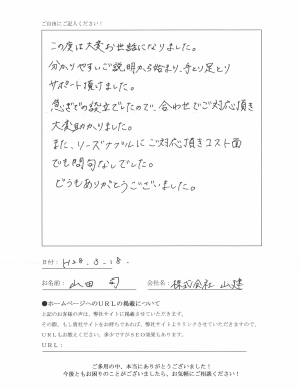 ご自由にご記入ください！
この度は大変お世話になりました。
分かりやすいご説明から始まり、手とり足とり
サポート頂けました。
急ぎでの設立でしたので、合わせてご対応頂き
大変助かりました。
また、リーズナブルにご対応頂きコスト面
でも問句なしでした。
どうもありがとうございました。
日付： H28.3.18.
お名前： 山田 司 会社名： 株式会社 山建
●ホームページへのＵＲＬの掲載について
上記のお客様の声は、弊社サイトに掲載させていただきます。
その際、もし貴社サイトをお持ちであれば、弊社サイトよりリンクさせていただきますので、
ＵＲＬもお教えください。多少ですがＳＥＯ効果もあります。
ＵＲＬ：
ご多用の中、本当にありがとうございました！
今後ともお困りのことがございましたら、お気軽にご相談ください！